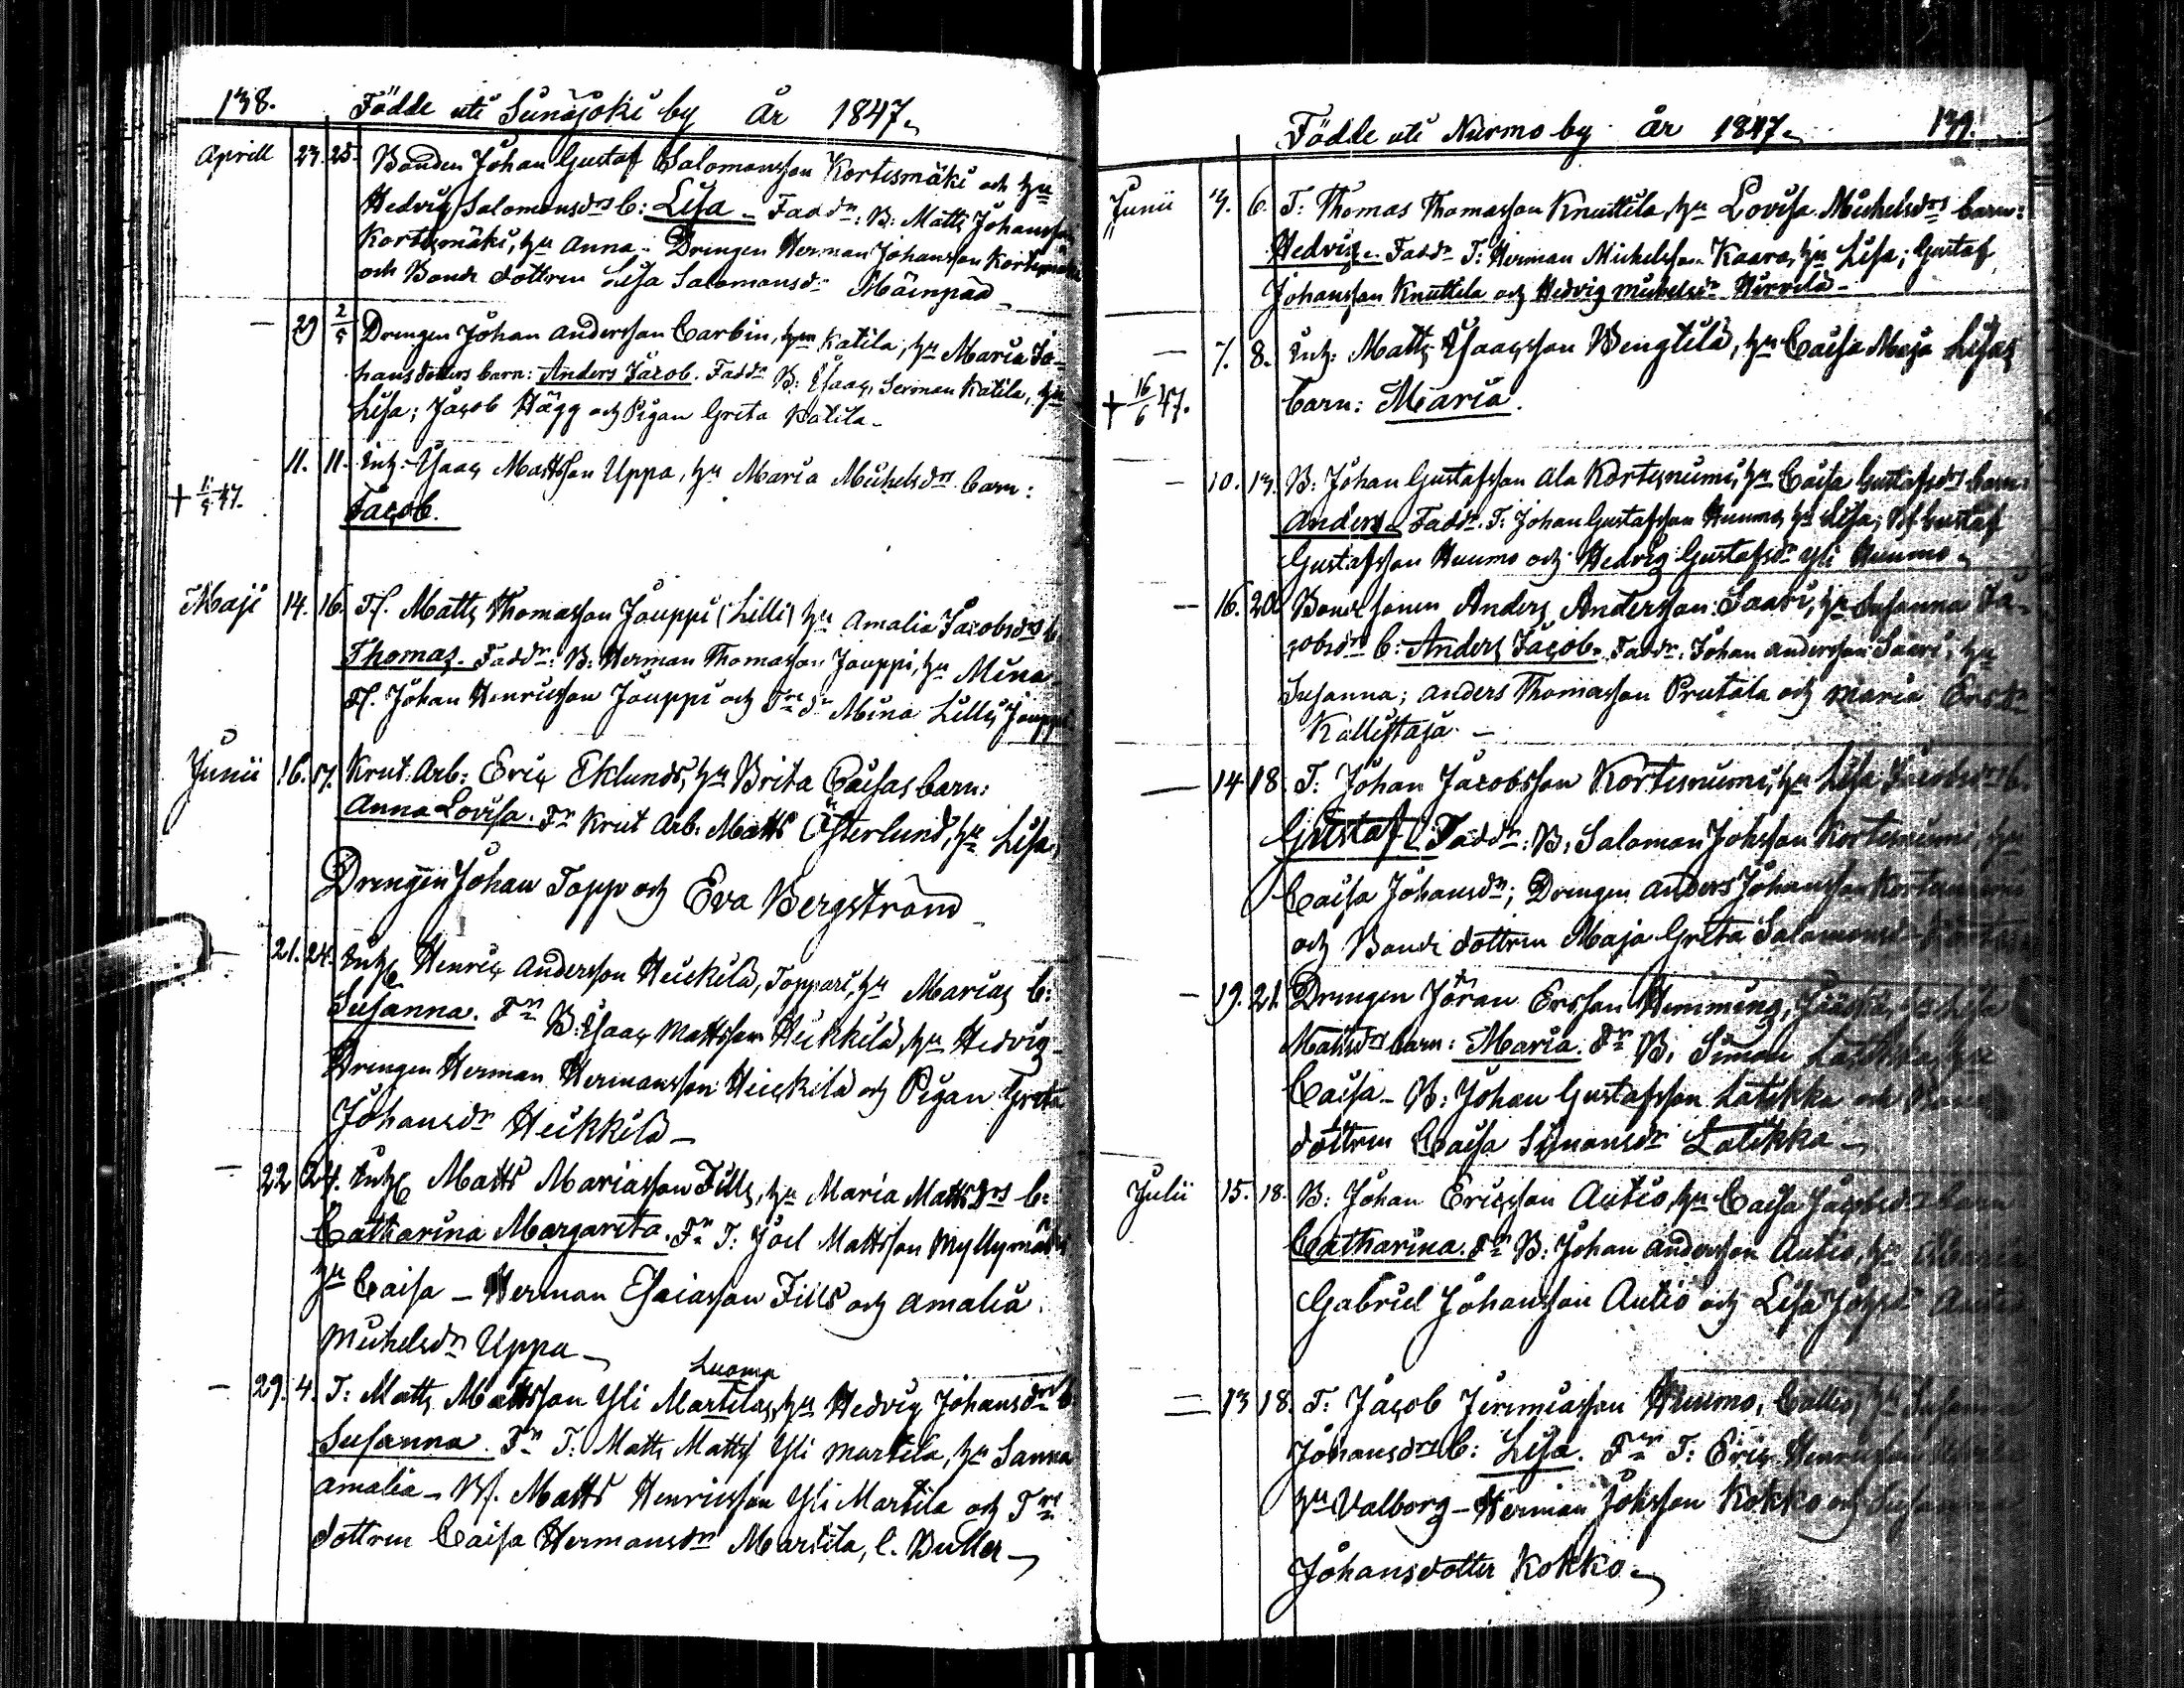 138. Födde uti Seinäjoki by År 1847.
Aprill 23. 25. Bonden Johan Gustaf Salomonsson Kortesmäki och hu
Hedvig Salomonsdrs b: Lisa – Faddr: B: Matts Johansson
Kortesmäki, hu Anna – Drengen Herman Johansson Kortesmäki
och Bonde dottren Lisa Salomonsdr Mäenpää –
– 29 2/5 Drengen Johan Andersson Carbin, Katila, hu Maria Jo-
hansdotters barn: Anders Jacob. Faddr B: Isaac Katila, hu
Lisa; Jacob Hägg och Pigan Greta Katila –
+ 11/5 47. 11. 11. Inh: Isaac Mattsson Uppa, hu Maria Michelsdrs barn:
Jacob.
Maji 14. 16. Tf. Matts Thomasson Jouppi (Lilli) hu Amalia Jacobsdrs b
Thomas. Faddr: B: Herman Thomasson Jouppi, hu Mina
Tf. Johan Henricsson Jouppi och Trs dr Mina Lilly Jouppi
Junii 16. 17. Krut. Arb: Eric Eklunds, hu Brita Caisas barn:
Anna Lovisa. Fr Krut Arb. Matts Österlund, hu Lisa,
Drengen Johan Topp och Eva Bergström –
– 21. 24. Inh Henric Andersson Heickilä, Toppari, hu Marias b:
Susanna. Fr B: Isaac Mattsson Heikkilä, hu Hedvig –
Drengen Herman Hermansson Heickilä och Pigan Greta
Johansdr Heikkilä –
– 22 24. Inh Matts Mariasson Fills, hu Maria Mattsdrs b:
Catharina Margareta. Fr T: Joel Mattsson Myllymäki
hu Caisa – Herman Esaiasson Fills och Amalia
Michelsdr Uppa –
Luoma
– 29. 4. T: Matts Mattsson Yli Martilas, hu Hedvig Johansdrs b
Susanna. Fr T: Matts Matts Yli Martila, hu Sanna
Amalia – Bf. Matts Henricsson Yli Martila och Trs
dottren Caisa Hermansdr Martila, l. Buller –
Födde uti Nurmo by år 1847. 139.
Junii 3. 6. T: Thomas Thomasson Knuttila, hu Lovisa Michelsdrs barn:
Hedvig – Faddr T: Herman Michelsson Kaara, hu Lisa; Gustaf
Johansson Knuttila och Hedvig Michelsdr Hirvelä –
– 7. 8. Inh: Matts Isaacsson Bengtilä, hu Caisa Maja Lisas
+ 16/6 47. barn: Maria.
– 10. 13. B: Johan Gustafsson Ala Kortesniemi, hu Caisa Gustafsdrs barn:
Anders – Faddr. T: Johan Gustafsson Huumo, hu Lisa; Bf Gustaf
Gustafsson Huumo och Hedvig Gustafsdr Yli Huumo –
– 16. 20. Bonde sonen Anders Andersson Saari, hu Susanna Ja-
cobsdrs b: Anders Jacob. Faddr: Johan Andersson Saari, hu
Susanna; Anders Thomasson Prutala och Maria Ersdr
Kallistaja –
– 14 18 T: Johan Jacobsson Kortesniemi, hu Lisa Jacobsdrs b.
Gustaf. Faddr: B: Salomon Johsson Kortesniemi, hu
Caisa Johansdr; Drengen Anders Johansson Kortesniemi
och Bonde dottren Maja Greta Salomonsdr
– 19. 21. Drengen Jöran Ersson Hemming, hu Lisa
Mattsdrs barn: Maria. Fr B: Simon Latikka, hu
Caisa – B: Johan Gustafsson Latikka och Bonde
dottren Caisa Simonsdr Latikka –
Julii 15. 18. B: Johan Ericsson Autio, hu Caisa Jacobsdrs barn
Catharina. Fr B: Johan Andersson Autio, hu
Gabriel Johansson Autio och Lisa Autio
– 13 18. T: Jacob Jeremiasson Huumo, Callio, hu Susanna
Johansdrs b: Lisa. Fr T: Eric Henricsson
hu Valborg – Herman Johsson Kokko och Susanna
Johansdotter Kokko –